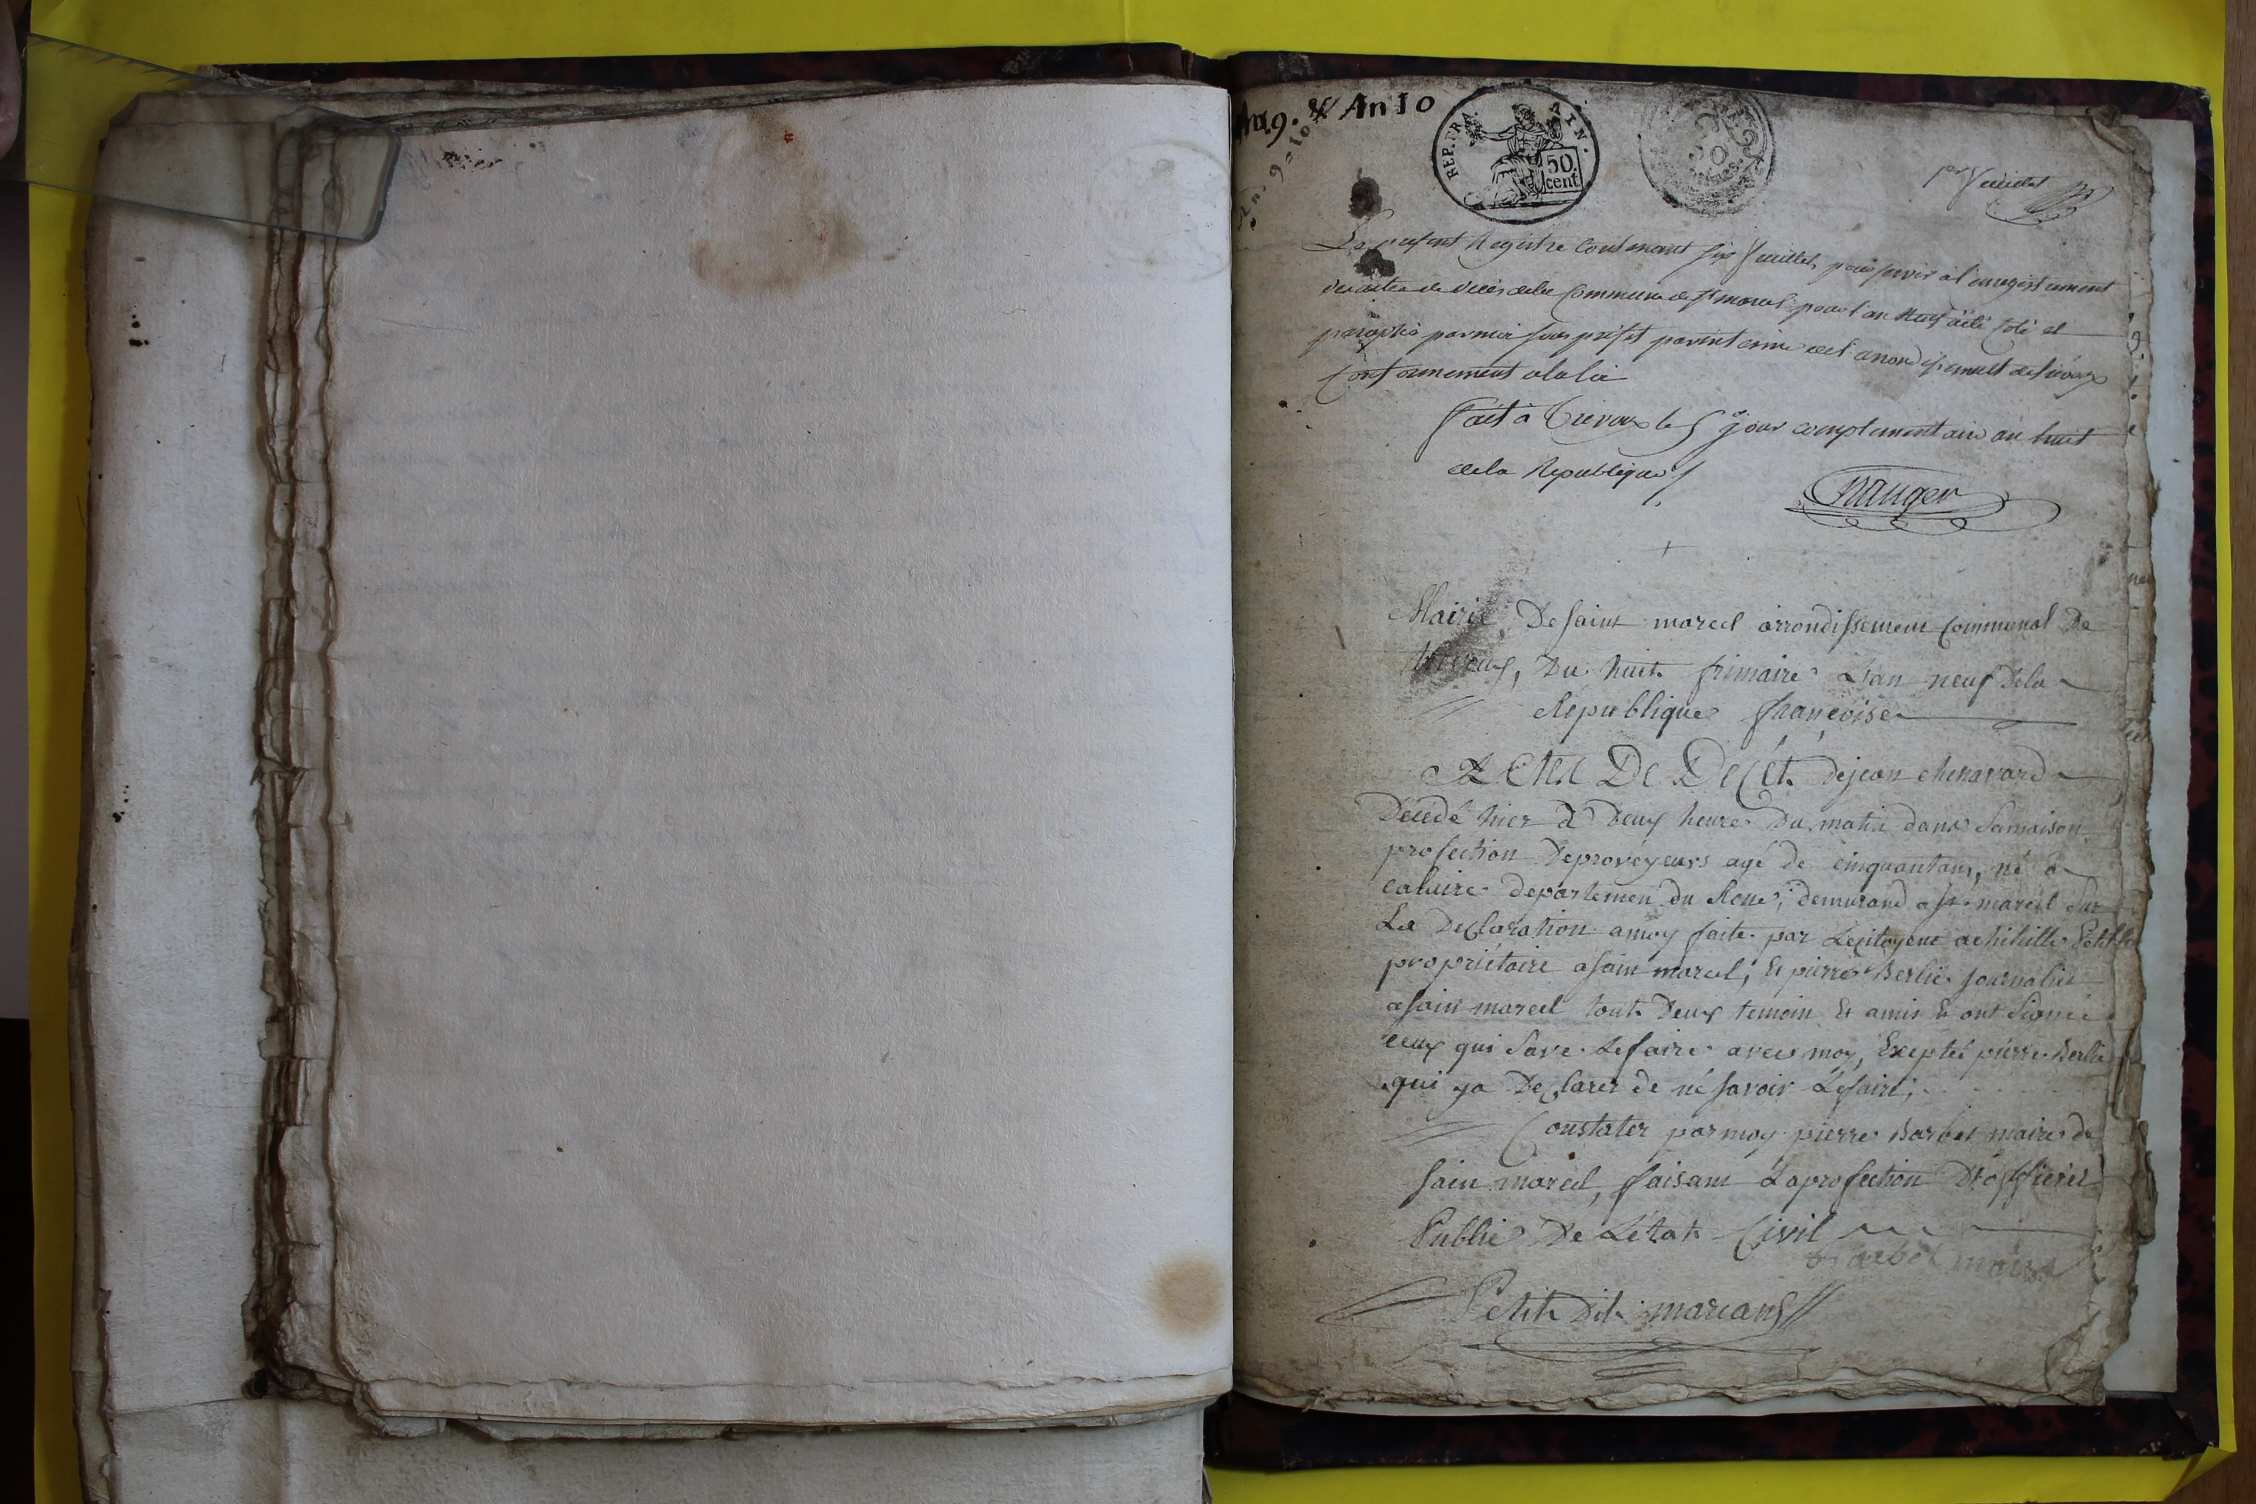 An 9. & An 10
An 9 = 10
REP. FRA. AIN.
50
cent.
1er feuillet
Le present Registre Contenant six feuillets pour servir a l'enregistrement
des actes de décès de la Commune de St marcel pour l'an Neuf a été Coté et
paraphé par moi sous préfet par interim de l'arrond issement de trévoux
Conformement a la loi
fait à Trevoux le 5e jour complementaire an huit
de la Republique
Mairie De saint marcel arrondissement Communal De
trevoux, Du huit frimaire L'an neuf Dela
République françoise
Acte De Décét de jean chenavard
Décédé hier à Deux heure Du matin dans samaison
profection Deprovéyeurs agé de cinquantans, né à
caluire departemen du Rone, demurand a st marcel sur
La Declaration amoy faite par Lecitoyent achihille Petit
propriétaire asain marcel, Et pierre Berlie journalier
asain marcel tout Deux temoin Et amis Et ont Signié
ceux qui save Lefaire avec moy, Exeptéé pierre Berlie
qui ya Declarer de né savoir Lefaire;
Constater parmoy pierre Barbet maire de
sain marcel, faisant Laprofection D'officier
Public De L'état Civil
Barbet maire
Petit Dit marcand